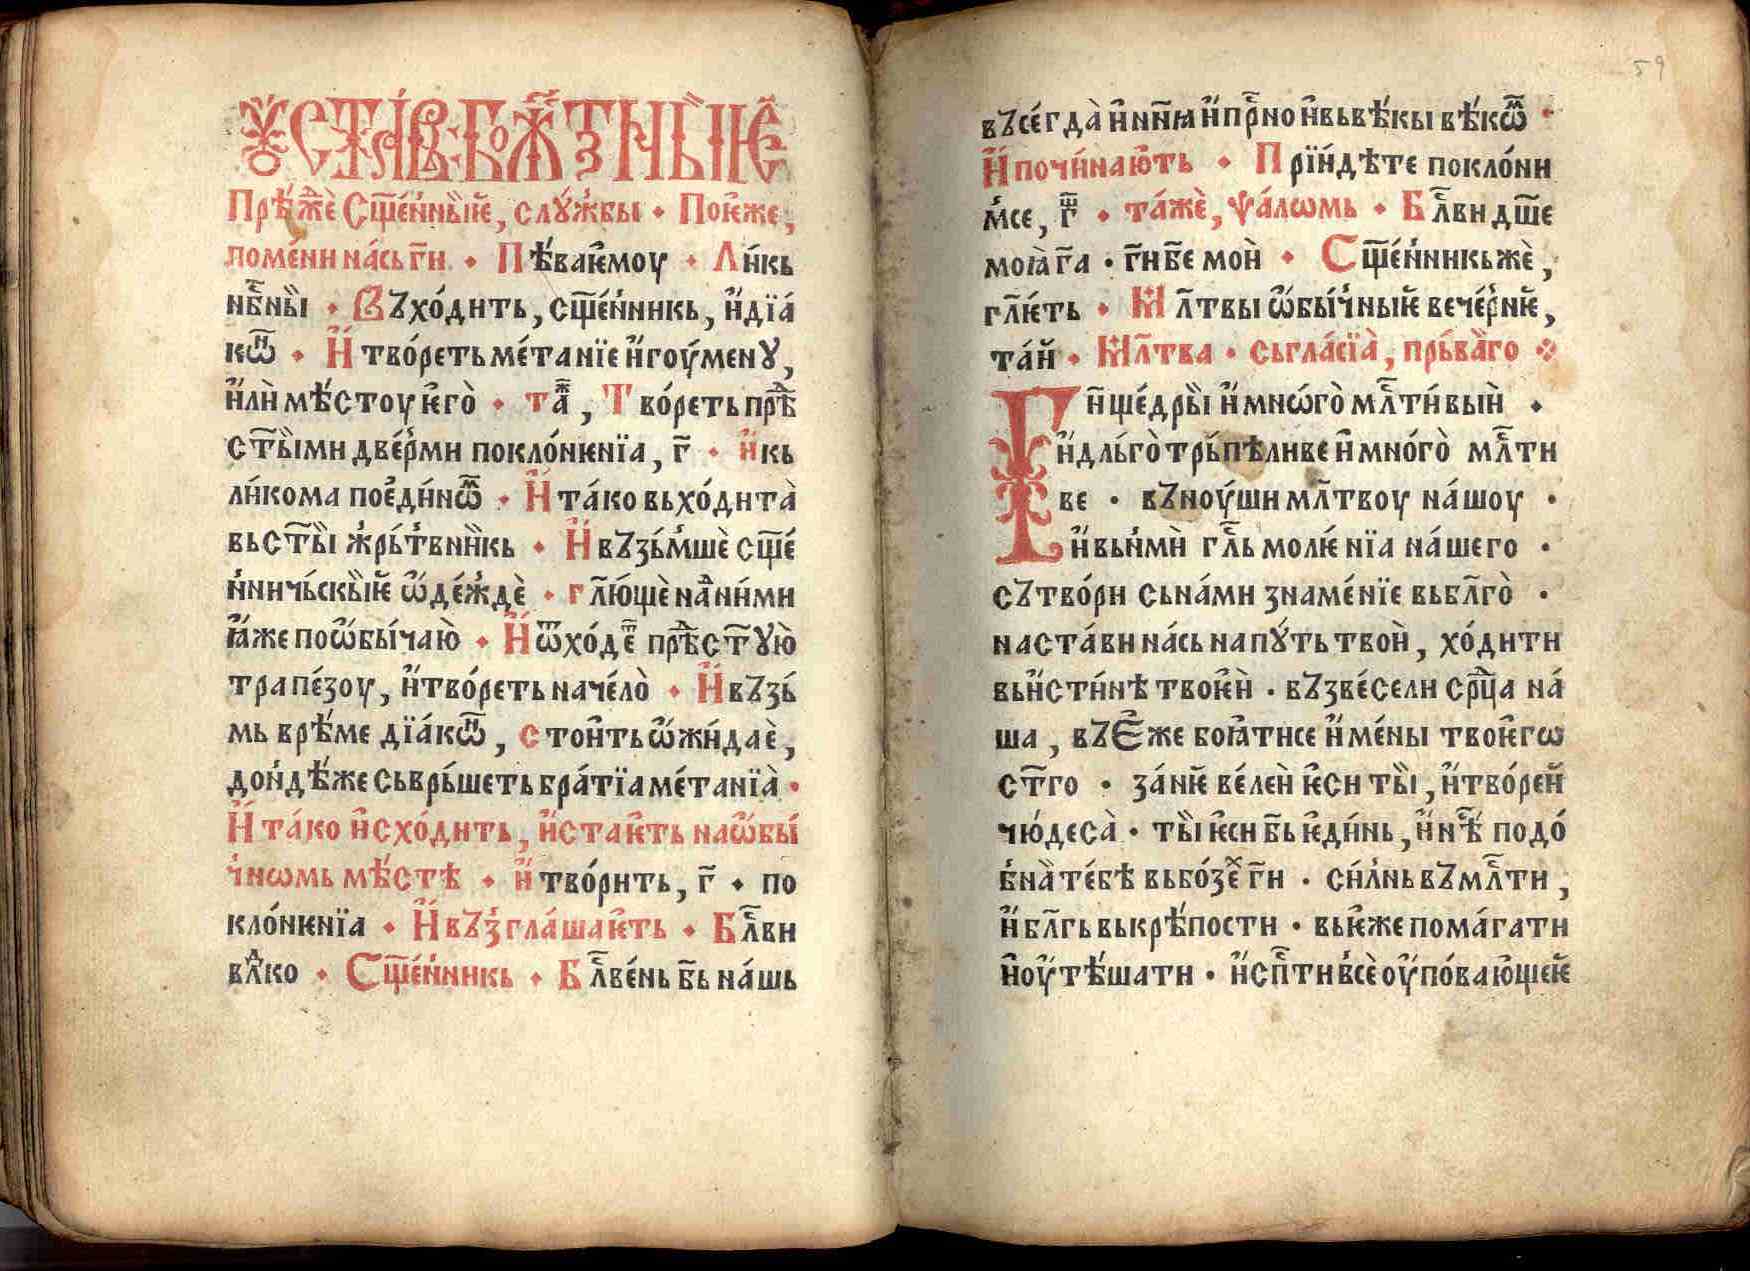 ОУСТАВ БОЖⷭ҇ТВНЫѤ
Прѣ́жⷣе Сщ҃е́нныѥ, слꙋ́жбы · Поѥ́же,
помени́ на́сь гⷭ҇и · Пѣ́ваѥмоу · Ли́кь
нбⷭ҇ныи · Въхо́дить, сщ҃е́нникь, и҆дїа́
кѡⷩ҇ · И҆ тво́реть ме́танїе и҆гоу́менꙋ,
и҆лѝ мѣ́стоу ѥ҆го̀ · таⷤ , Тво́реть прⷣѣ
ст҃ы́ми две́рми покло́нѥнїа, г҃ · и҆кь
ли́кома пое҆ди́нѡⷨ · И҆ та́ко вьхо́дита̀
вьст҃ы́и жрь́твникь · И҆ възьмшѐ сщ҃е́
нничьскыѥ ѡ҆де́ждѐ · гл҃ю́щѐ наⷣни́ми
ꙗ҆же поѡ҆бы́чаю̀ · И҆ ѿхо́деⷮ прⷣѣст҃ꙋю̀
трапе́зоу, и҆тво́реть начело̀ · И҆ възь́
мь врѣ́ме дїа́кѡⷩ, стои́ть ѡ҆жи́даѐ,
до́ндѣже сьврь́шеть бра́тїа ме́танїа̀ ·
И҆ та́ко и҆схо́дить, и҆стаѥ́ть на ѡ҆бы́
чнѡмь мѣ́стѣ · и҆ тво́рить, г҃ · по
кло́нѥнїа · И҆ въꙁгла́шаѥть · Блⷭ҇ви
влⷣко · Сщ҃е́нникь · Блⷭ҇ве́нь б҃ь на́шь
59
въсе́гда̀ и҆ нн҃ꙗ и҆ прⷭ҇но и҆ вь вѣ́кы вѣ́кѡⷨ ·
И҆ почи́наю́ть · Прїи́дѣте покло́ни
мсе, г҃ · та́жѐ, ѱа́лѡмь · Блⷭ҇ви дш҃е
моꙗ̀ г҃а · г҃и б҃е мо́и · Сщ҃е́нникьжѐ,
гл҃ѥть · Мл҃твы ѡ҆бы́чныѥ вече́рнѥ,
та́и · Мл҃тва · сьгла́сїа̀, прь́ва̀го
Ги҃ ще́дрыи и҆ мнѡ́го̀ млⷭ҇ти́выи ·
и҆ дль́го̀трь́пѣливе и҆ мно́го̀ млⷭ҇ти
ве · въноу́ши мл҃твоу на́шоу ·
и҆ вьнми̑ глⷭ҇ь молѥ́нїа на́шего ·
сътво́ри сьна́ми знаме́нїе вьбл҃го̀ ·
наста́ви на́сь на пꙋ́ть твои̑, хо́дити
вьи́сти́нѣ твоѥи̑ · възве́сели срⷣца на́
ша, въ Е҆же боꙗ́тисе и҆ме́ны твоѥ́гѡ
ст҃го · за́нѥ ве́леи̑ ѥ҆си ты̀и, и҆тво́реи
чю́деса̀ · ты̀и ѥ҆си б҃ь ѥ҆ди́нь, и҆ нⷭ҇ѣ подо́
бна̀ те́бѣ вьбо́зеⷯ г҃и · си́лнь въ млⷭ҇ти,
и҆ бл҃гь вькрѣ́пости · вьѥ҆́же пома́гати
и҆ оу҆тѣ́шати · и҆ спⷭ҇ти всѐ оу҆пова́ющеѥ